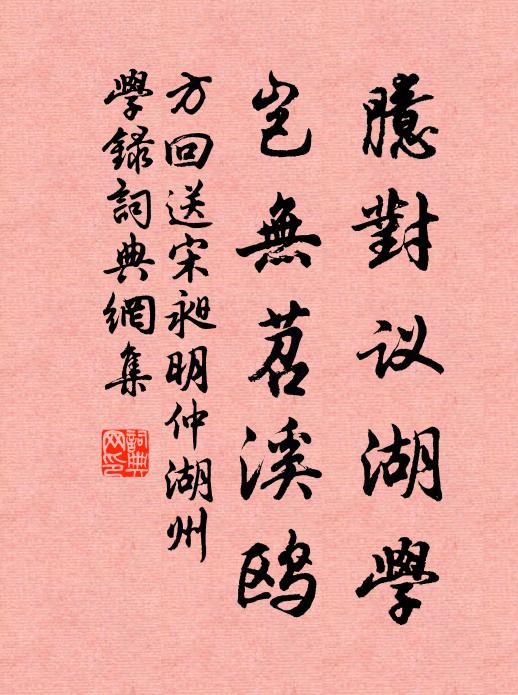 臆對议湖學
岂無苕溪鸥
方回送宋昶明仲湖州
學録詞典網集
詞典
网印